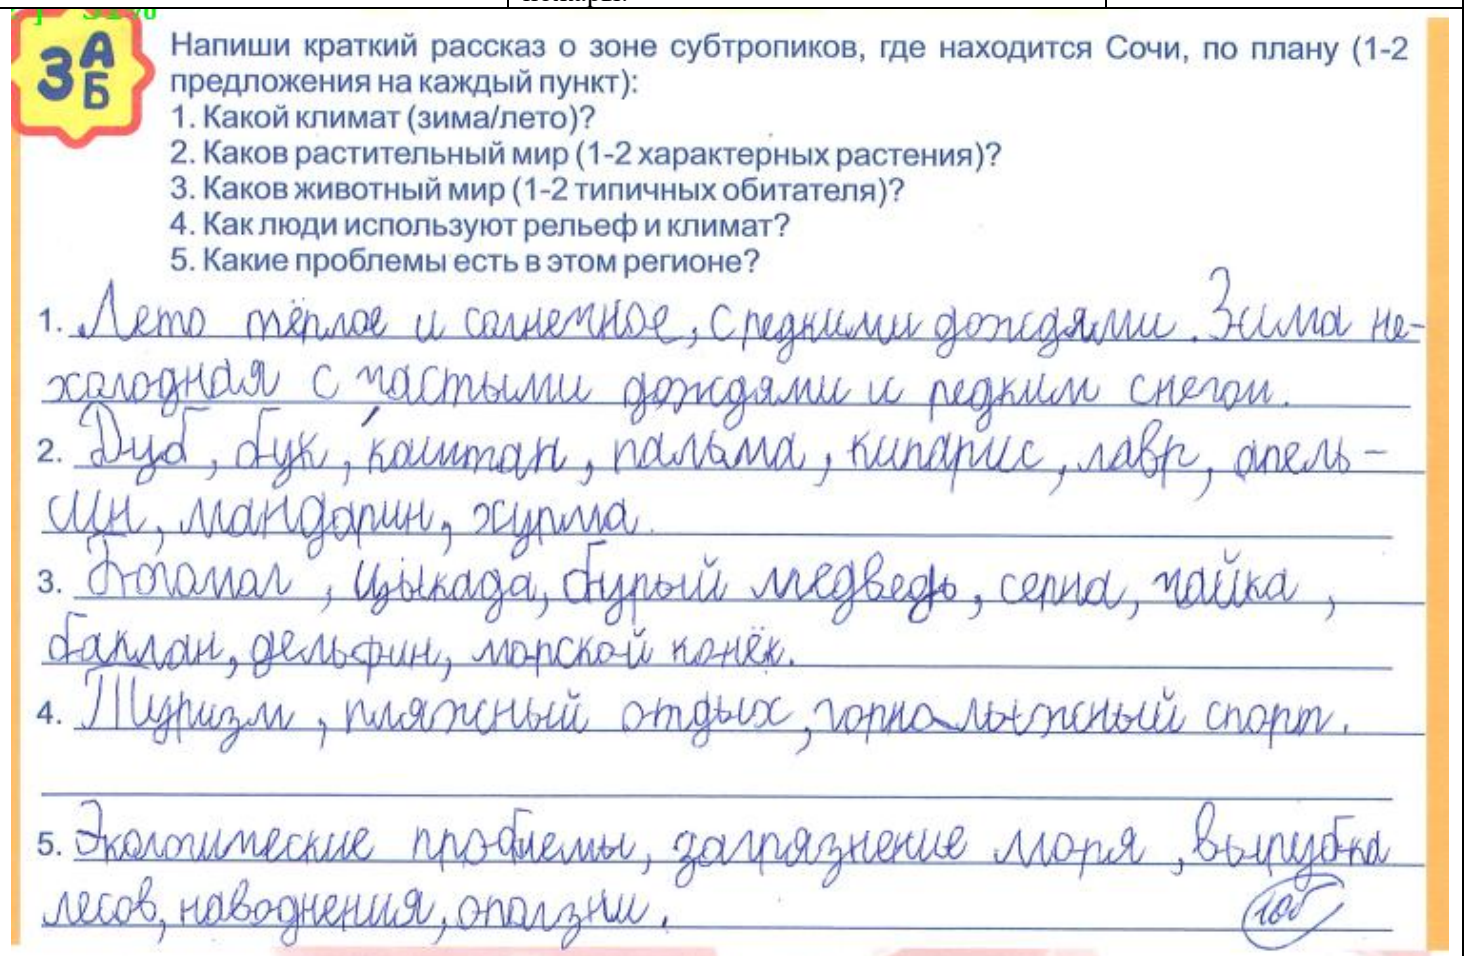 3 А Б
Напиши краткий рассказ о зоне субтропиков, где находится Сочи, по плану (1-2
предложения на каждый пункт):
1. Какой климат (зима/лето)?
2. Каков растительный мир (1-2 характерных растения)?
3. Каков животный мир (1-2 типичных обитателя)?
4. Как люди используют рельеф и климат?
5. Какие проблемы есть в этом регионе?
1. Лето тёплое и солнечное, с редкими дождями. Зима не-
холодная с частыми дождями и редким снегом.
2. Дуб, бук, каштан, пальма, кипарис, лавр, апель-
син, мандарин, хурма.
3. Богомол, цыкада, бурый медведь, серна, чайка,
баклан, дельфин, морской конёк.
4. Туризм, пляжный отдых, горнолыжный спорт.
5. Экологические проблемы, загрязнение моря, вырубка
лесов, наводнения, оползни.
10б